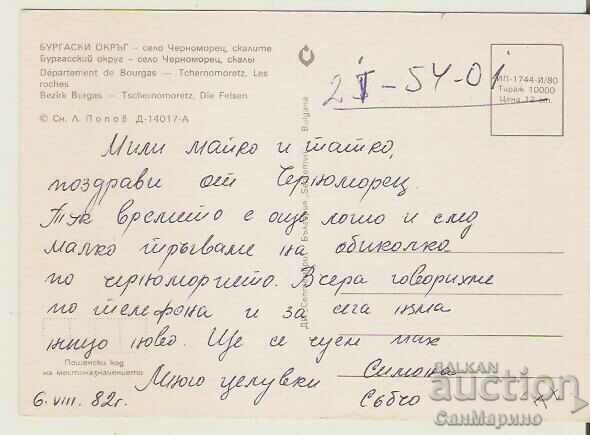 БУРГАСКИ ОКРЪГ – село Черноморец, скалите
Бургасский округ – село Черноморец, скалы
Département de Bourgas — Tchernomoretz, Les
roches
Bezirk Burgas — Tschernomoretz, Die Felsen
© Сн. Л. Попов Д-14017-А
2I-54-01
ИП-1744-И/80
Тираж 10000
Цена 12 ст.
Мили майко и татко,
поздрави от Черноморец.
Тук времето е още лошо и след
малко тръгваме на обиколка
по черноморието. Вчера говорихме
по телефона и за сега няма
нищо ново. Ще се чуем пак
Много целувки
Симона
Събчо
6.VIII.82г.
Пощенски код
на местоназначението
България
Bulgarie
БАЛКАН
auction
СанМарино